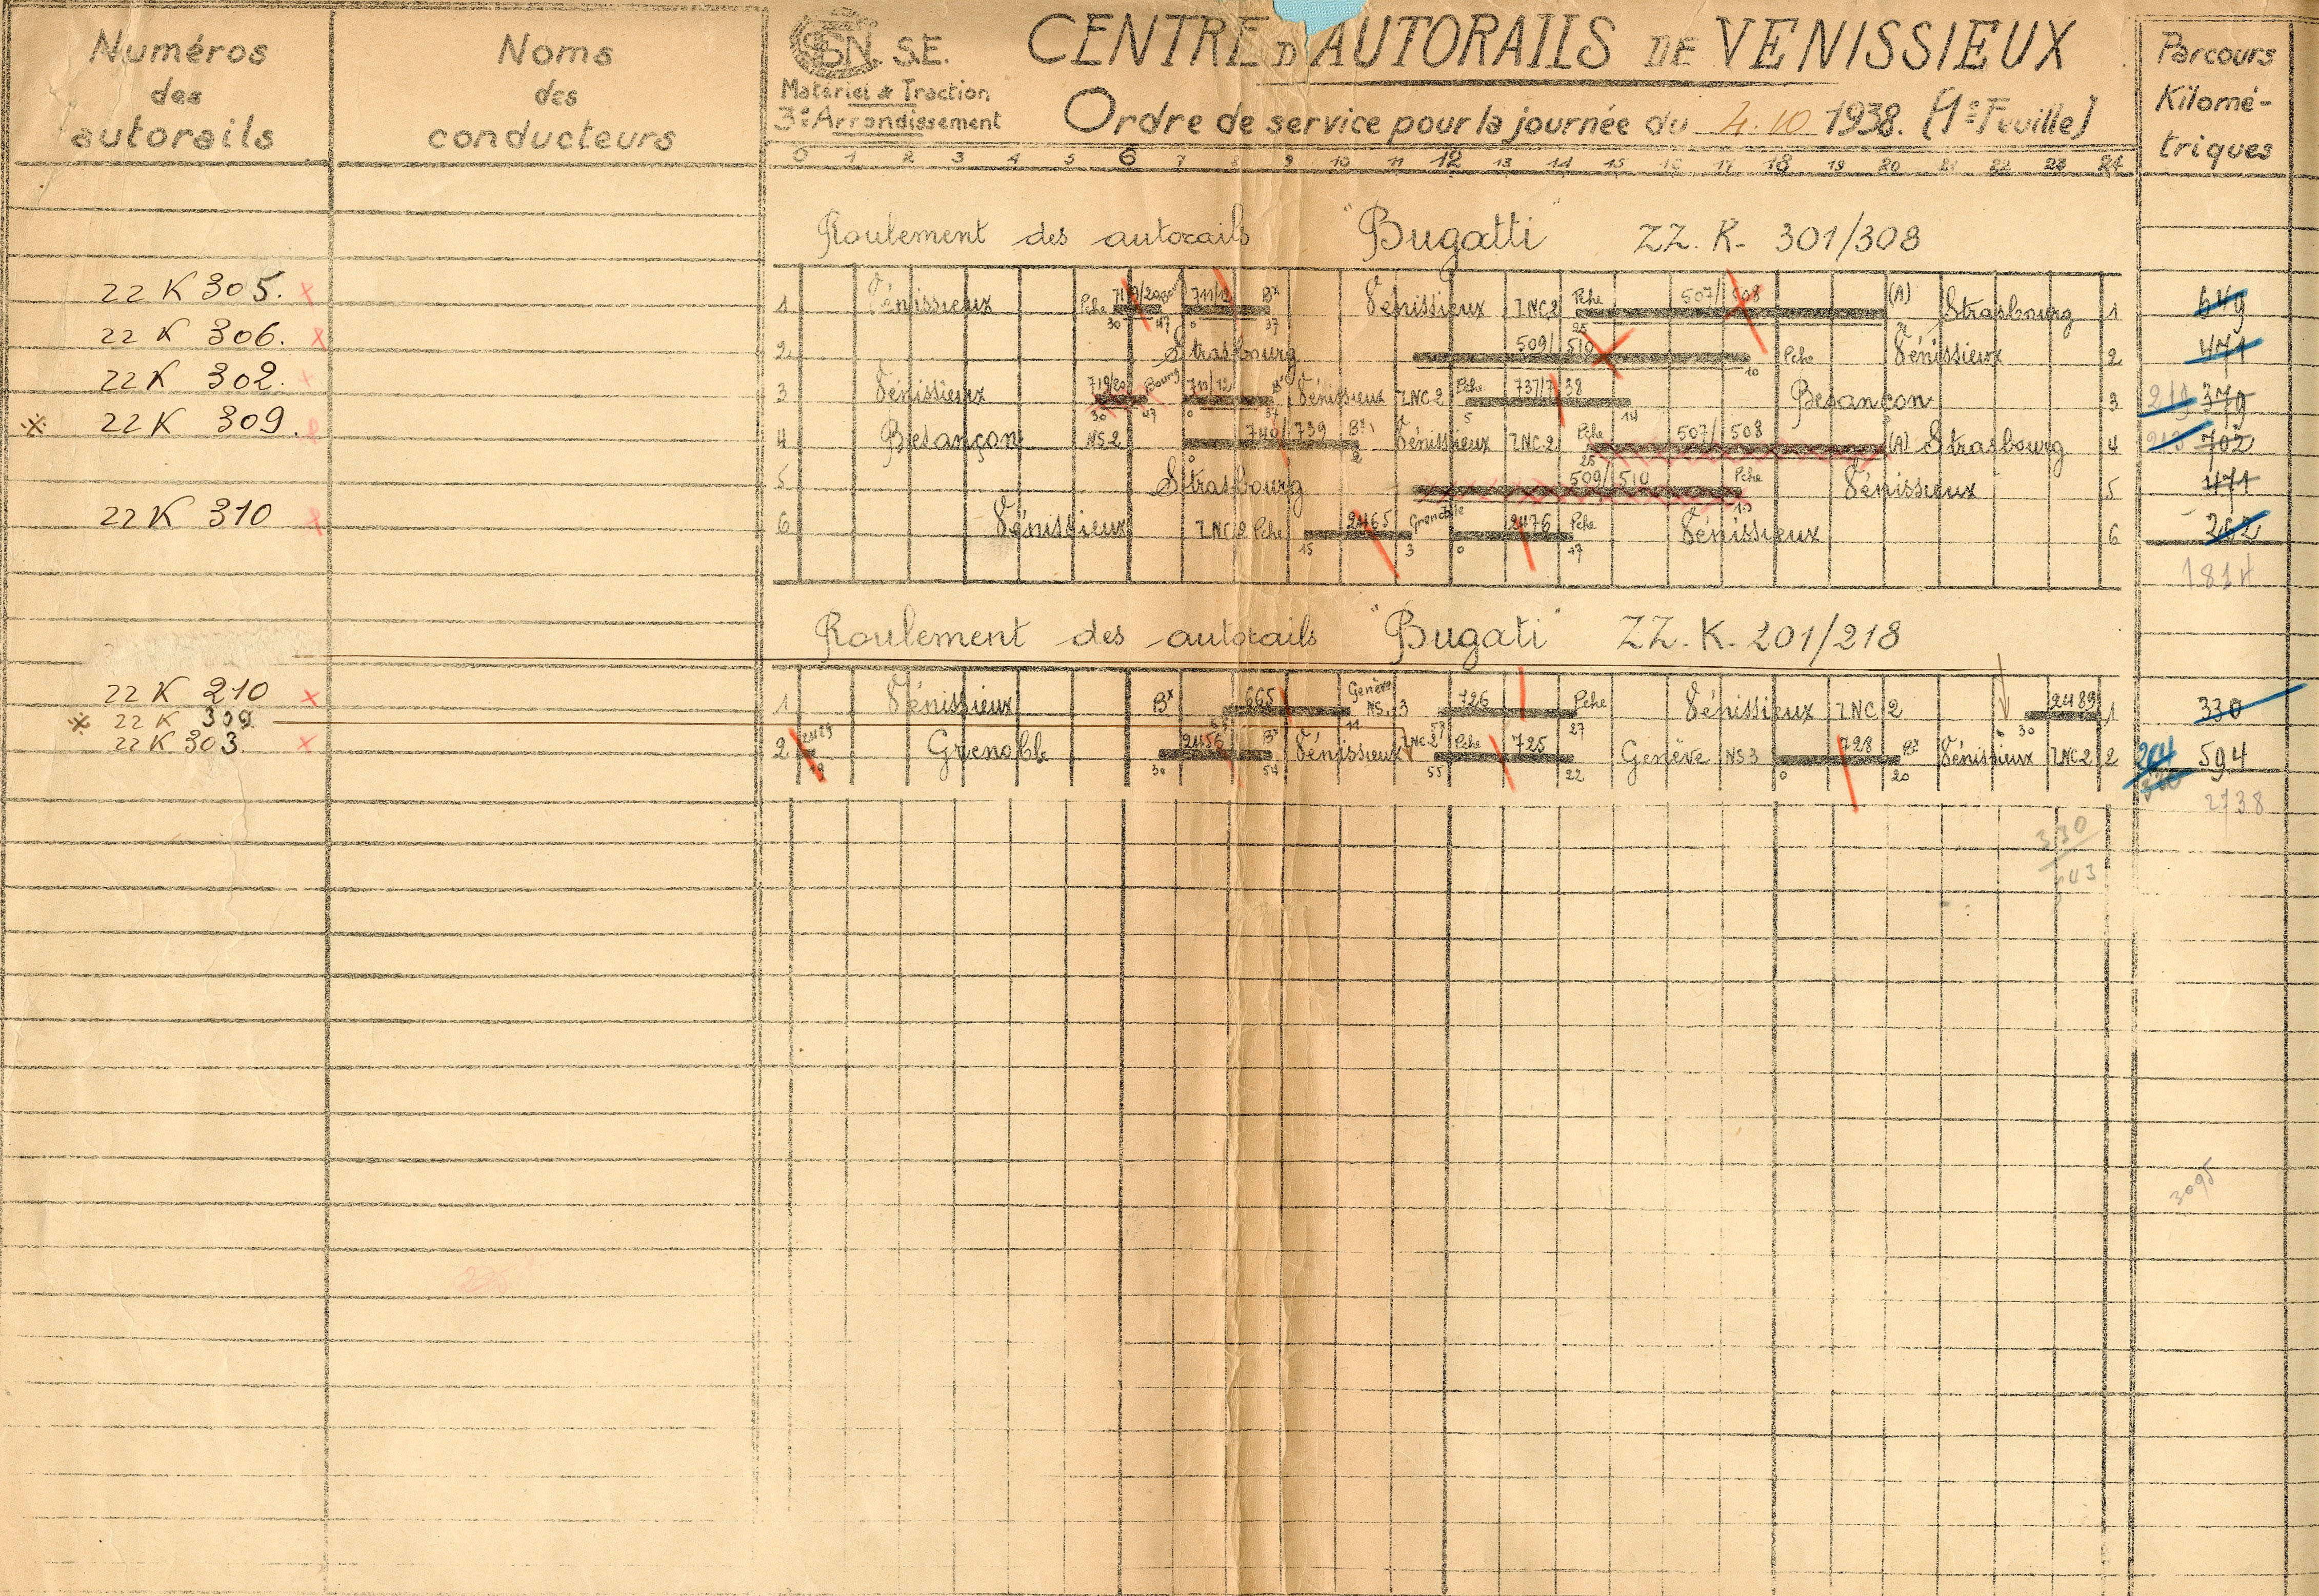 Numéros
des
autorails
Noms
des
conducteurs
S.E.
Matériel & Traction
3e Arrondissement
CENTRE D'AUTORAILS DE VENISSIEUX
Ordre de service pour la journée du 4.10 1938. (1e Feuille)
Parcours
Kilomé-
triques
0 1 2 3 4 5 6 7 8 9 10 11 12 13 14 15 16 17 18 19 20 21 22 23 24
Roulement des autorails "Bugatti" ZZ.K- 301/308
22 K 305. 1 Vénissieux Pche 719/20 Bourg 711/12 Bx Vénissieux 7NC2 Pche 507/508 (A) Strasbourg 1 649
30 47 0 37 25
22 K 306. 2 Strasbourg 509/510 Pche Vénissieux 2 471
10
22 K 302. 3 Vénissieux 719/20 Bourg 711/12 Bx Vénissieux 7NC2 Pche 737/738 Besançon 3 379
30 47 0 37 5 14
※ 22 K 309. 4 Besançon NS2 740/739 Bx Vénissieux 7NC2 Pche 507/508 (A) Strasbourg 4 213 702
0 2 25
5 Strasbourg 509/510 Pche Vénissieux 5 471
10
22 K 310 6 Vénissieux 7NC2 Pche 2465 Grenoble 2476 Pche Vénissieux 6 262
15 3 0 17
1814
Roulement des autorails "Bugati" ZZ.K- 201/218
22 K 210 1 Vénissieux Bx 665 Genève NS 3 726 Pche Vénissieux 7NC2 2489 1 330
11 27 30
※ 22 K 309
22 K 303. 2 2489 Grenoble 2456 Bx Vénissieux 7NC2 Pche 725 Genève NS3 728 Bx Vénissieux 7NC2 2 264 594
30 54 55 22 0 20
2738
330
3095